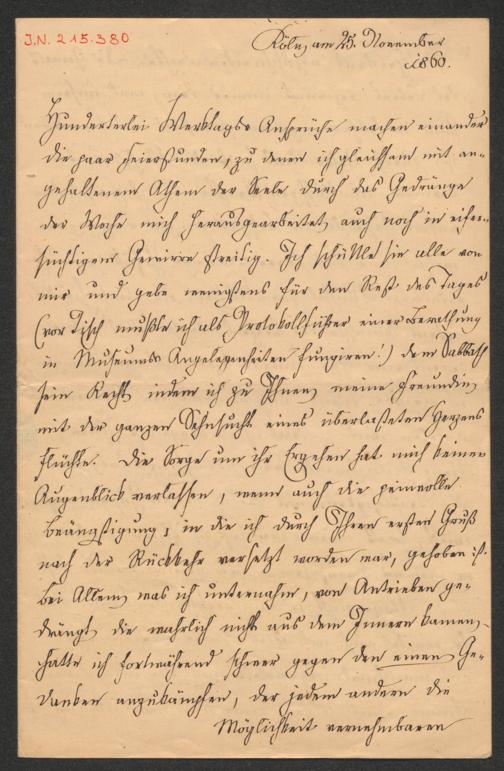 J.N. 215.380
Köln, am 25. November
1860.
Hunderterlei Werktags Ansprüche machen einander
die paar Feierstunden, zu denen ich gleichsam mit an-
gehaltenem Athem der Seele durch das Gedränge
der Woche mich herausgearbeitet, auch noch in eifer-
süchtigem Gewirre streitig. Ich schüttle sie alle von
mir und gebe wenigstens für den Rest des Tages
(vor Tisch mußte ich als Protokollführer einer Berathung
in Museums Angelegenheiten fungiren!) dem Sabbath
sein Recht, indem ich zu Ihnen, meine Freundin,
mit der ganzen Sehnsucht eines überlasteten Herzens
flüchte. Die Sorge um ihr Ergehen hat mich keinen
Augenblick verlassen, wenn auch die peinvolle
Beängstigung, in die ich durch Ihren ersten Gruß
nach der Rückkehr versetzt worden war, gehoben ist.
Bei Allem, was ich unternahm, von Antrieben ge-
drängt, die wahrlich nicht aus dem Innern kamen,
hatte ich fortwährend schwer gegen den einen Ge-
danken anzukämpfen, der jedem andern die
Möglichkeit vernehmbaren